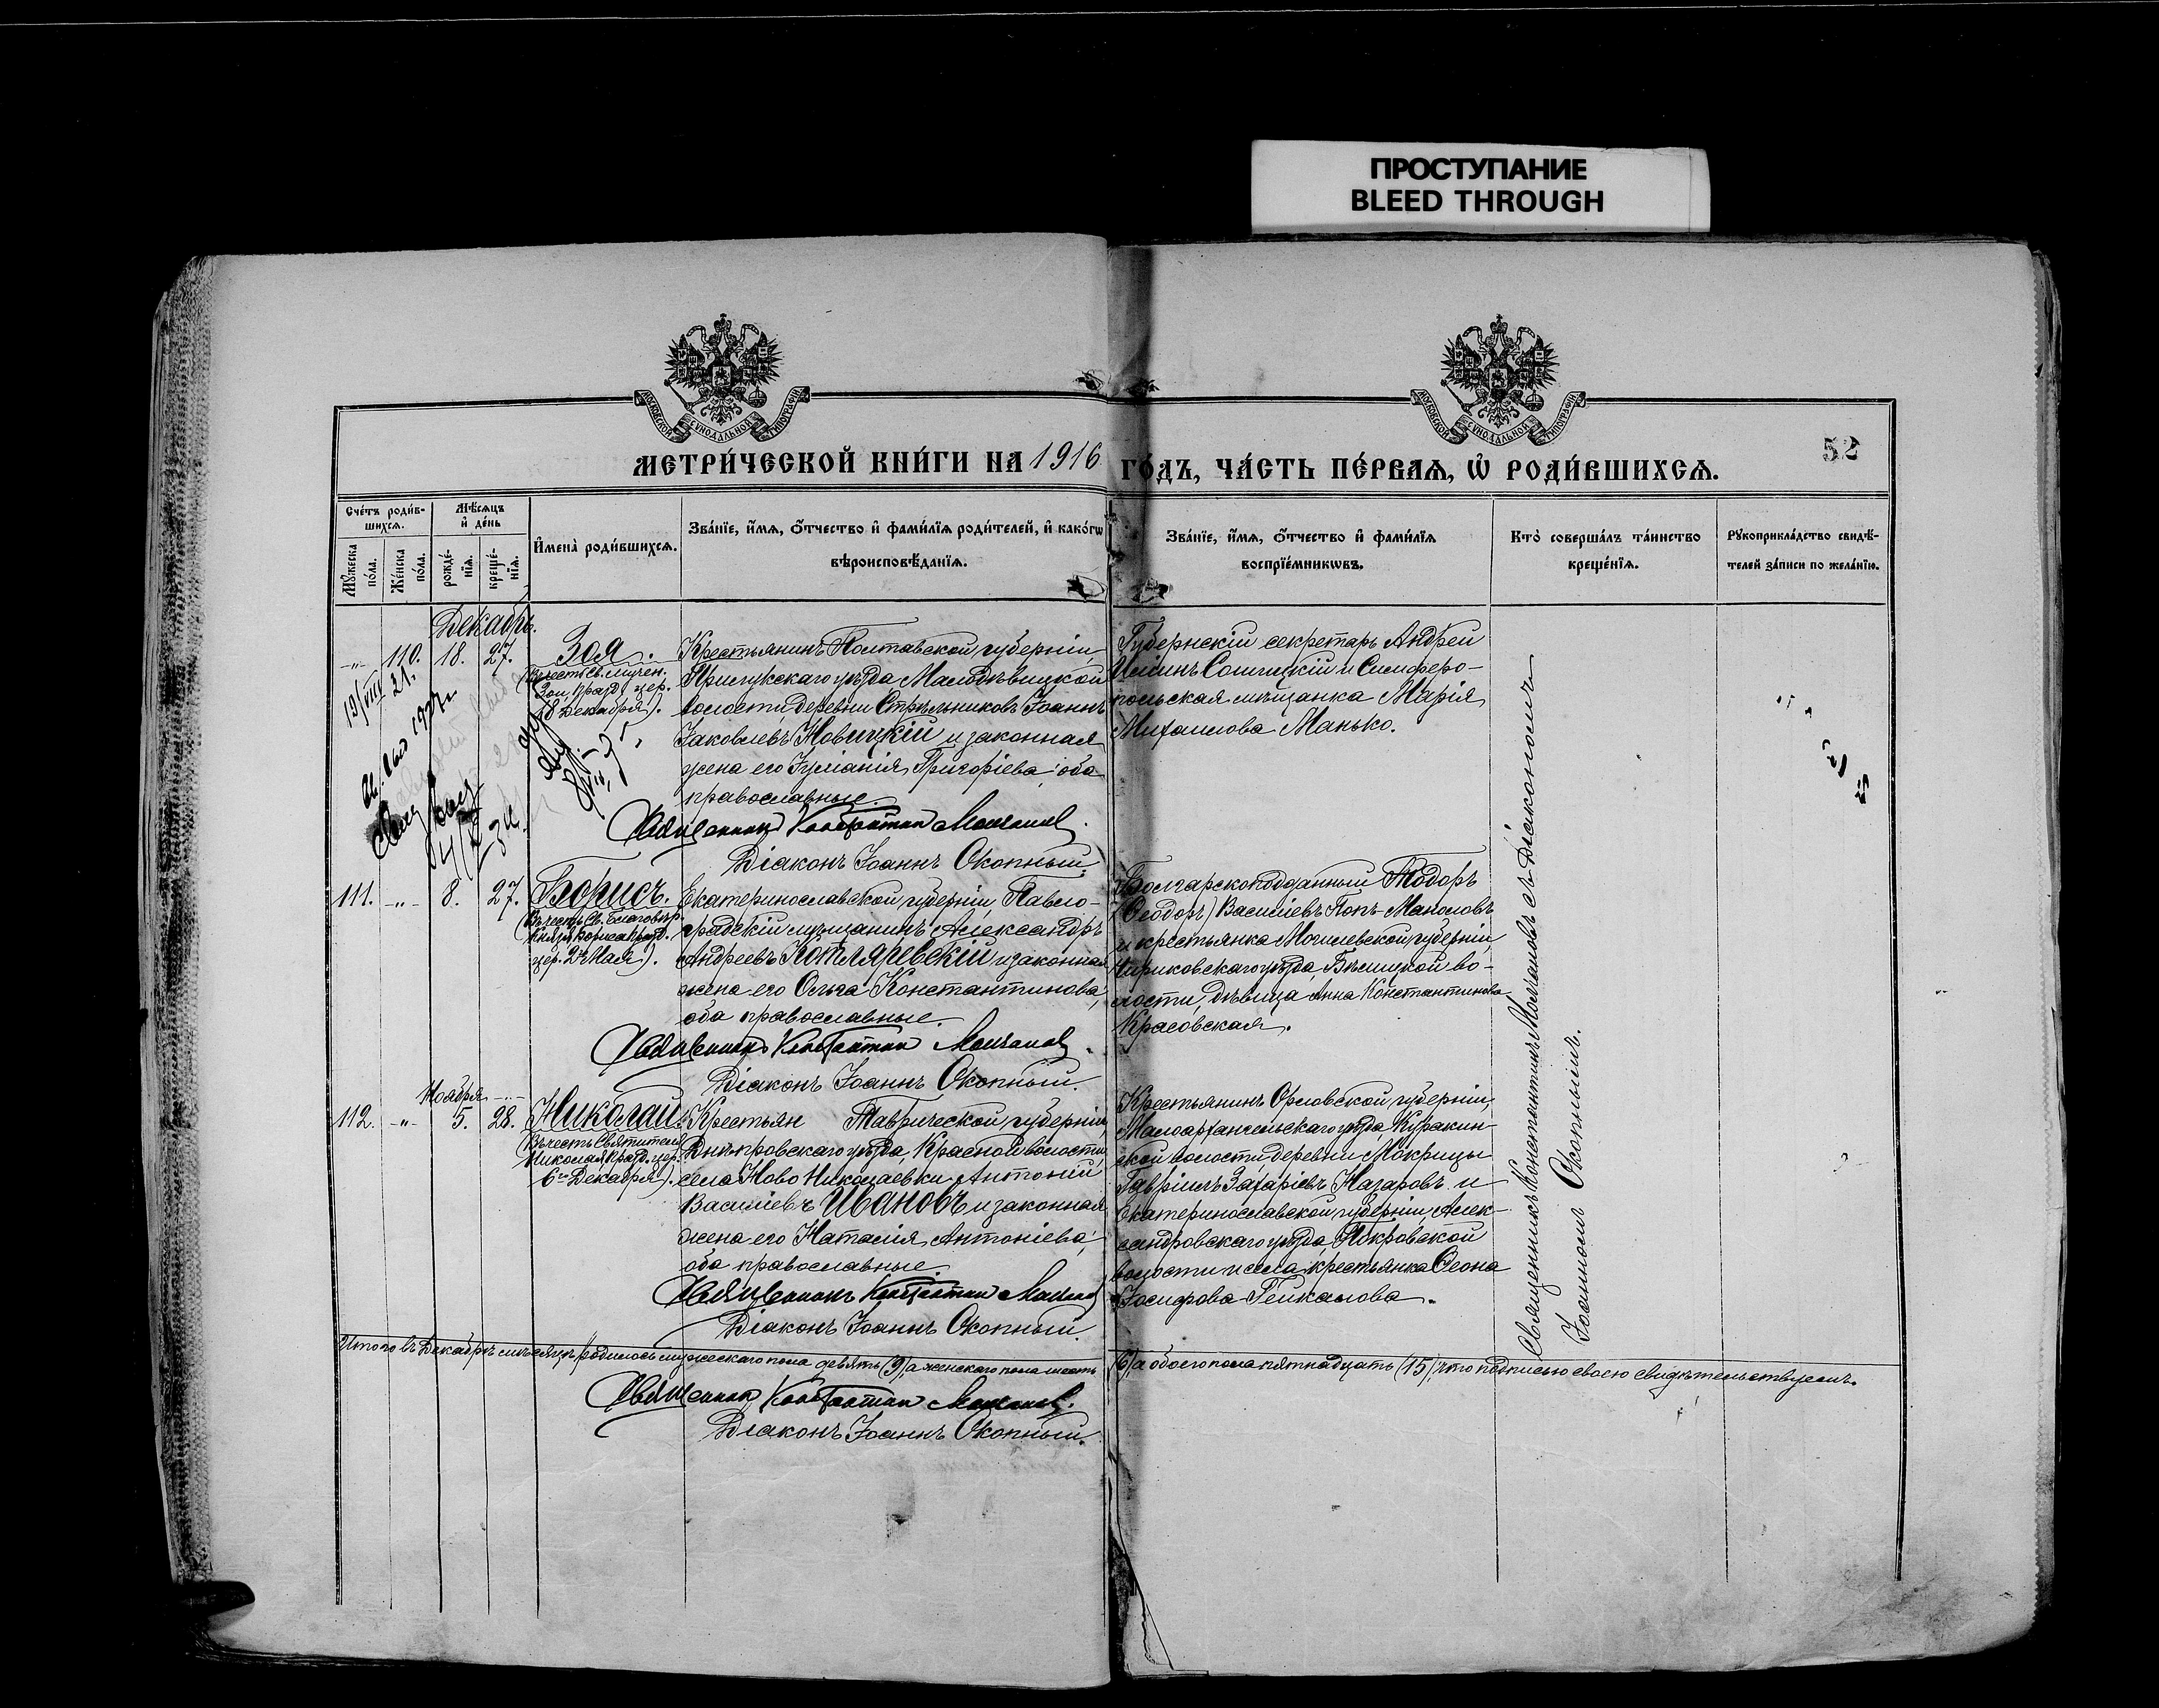 ПРОСТУПАНИЕ
BLEED THROUGH
МЕТРИ́ЧЕСКОЙ КНИ́ГИ НА 1916 ГО́ДЪ, ЧА́СТЬ ПЕ́РВАЯ, Ѡ РОДИ́ВШИХСЯ.
52
Сче́тъ роди́в-
шихся.
Мѣ́сяцъ
и де́нь
Мꙋ́жеска
по́ла.
Же́нска
по́ла.
рожде́-
нїя.
креще́-
нїя.
Имена̀ роди́вшихся.
Зва́нїе, и́мя, о́тчество и фами́лїя роди́телей, и како́гѡ
вѣроисповѣ́данїя.
Зва́нїе, и́мя, о́тчество и фами́лїя
воспрїе́мникѡвъ.
Кто̀ соверша́лъ та́инство
креще́нїя.
Рꙋкоприкла́дство свидѣ́-
телей за́писи по жела́нїю.
Декабрь.
-„- 110. 18. 27. Зоя.
(Въ честь Св. мучен.
Зои, празд. цер.
18 Декабря).
Крестьянинъ Полтавской губерніи,
Прилукскаго уѣзда Малодѣвицкой
волости, деревни Стрѣльниковъ Іоаннъ
Іаковлевъ Новицкій и законная
жена его Іуліанія Григоріева, оба
православные.
Священникъ Константинъ Молчановъ
Діаконъ Іоаннъ Окопный.
Губернскій секретарь Андрей
Симферо-
польская мѣщанка Марія
Михаилова Манько.
111. -„- 8. 27. Борисъ.
(Въ честь Св. Благовѣр.
Князя Бориса празд.
цер. 2го Мая).
Екатеринославской губерніи, Павло-
градскій мѣщанинъ Александръ
Андреевъ Котляревскій и законная
жена его Ольга Константинова,
оба православные.
Священникъ Константинъ Молчановъ
Діаконъ Іоаннъ Окопный.
Болгарскоподданный Тодоръ
(Ѳеодоръ) Василіевъ Попъ-Маноловъ
и крестьянка Могилевской губерніи,
Чериковскаго уѣзда, во-
лости, дѣвица Анна Константинова
Красовская.
Ноября
112. -„- 5. 28. Николай.
(Въ честь Святителя
Николая празд. цер.
6го Декабря).
Крестьян Таврической губерніи,
Днѣпровскаго уѣзда, Красной волости,
села Ново Николаевки Антоній
Василіевъ Ивановъ и законная
жена его Наталія Антоніева,
оба православные.
Священникъ Константинъ Молчановъ
Діаконъ Іоаннъ Окопный.
Крестьянинъ Орловской губерніи,
Малоархангельскаго уѣзда, Куракин-
ской волости деревни Мокрицы
Гавріилъ Захаріевъ Назаровъ и
Екатеринославской губерніи, Алек-
сандровскаго уѣзда, Покровской
волости и села крестьянка
Іосифова
Священникъ Константинъ Молчановъ съ Діакономъ
Іоанномъ Окопнымъ.
Итого въ Декабрѣ мѣсяцѣ родилось мужескаго пола девять (9), а женскаго пола шесть (6), а обоего пола пятнадцать (15), что подписью своею свидѣтельствуемъ.
Священникъ Константинъ Молчановъ.
Діаконъ Іоаннъ Окопный.